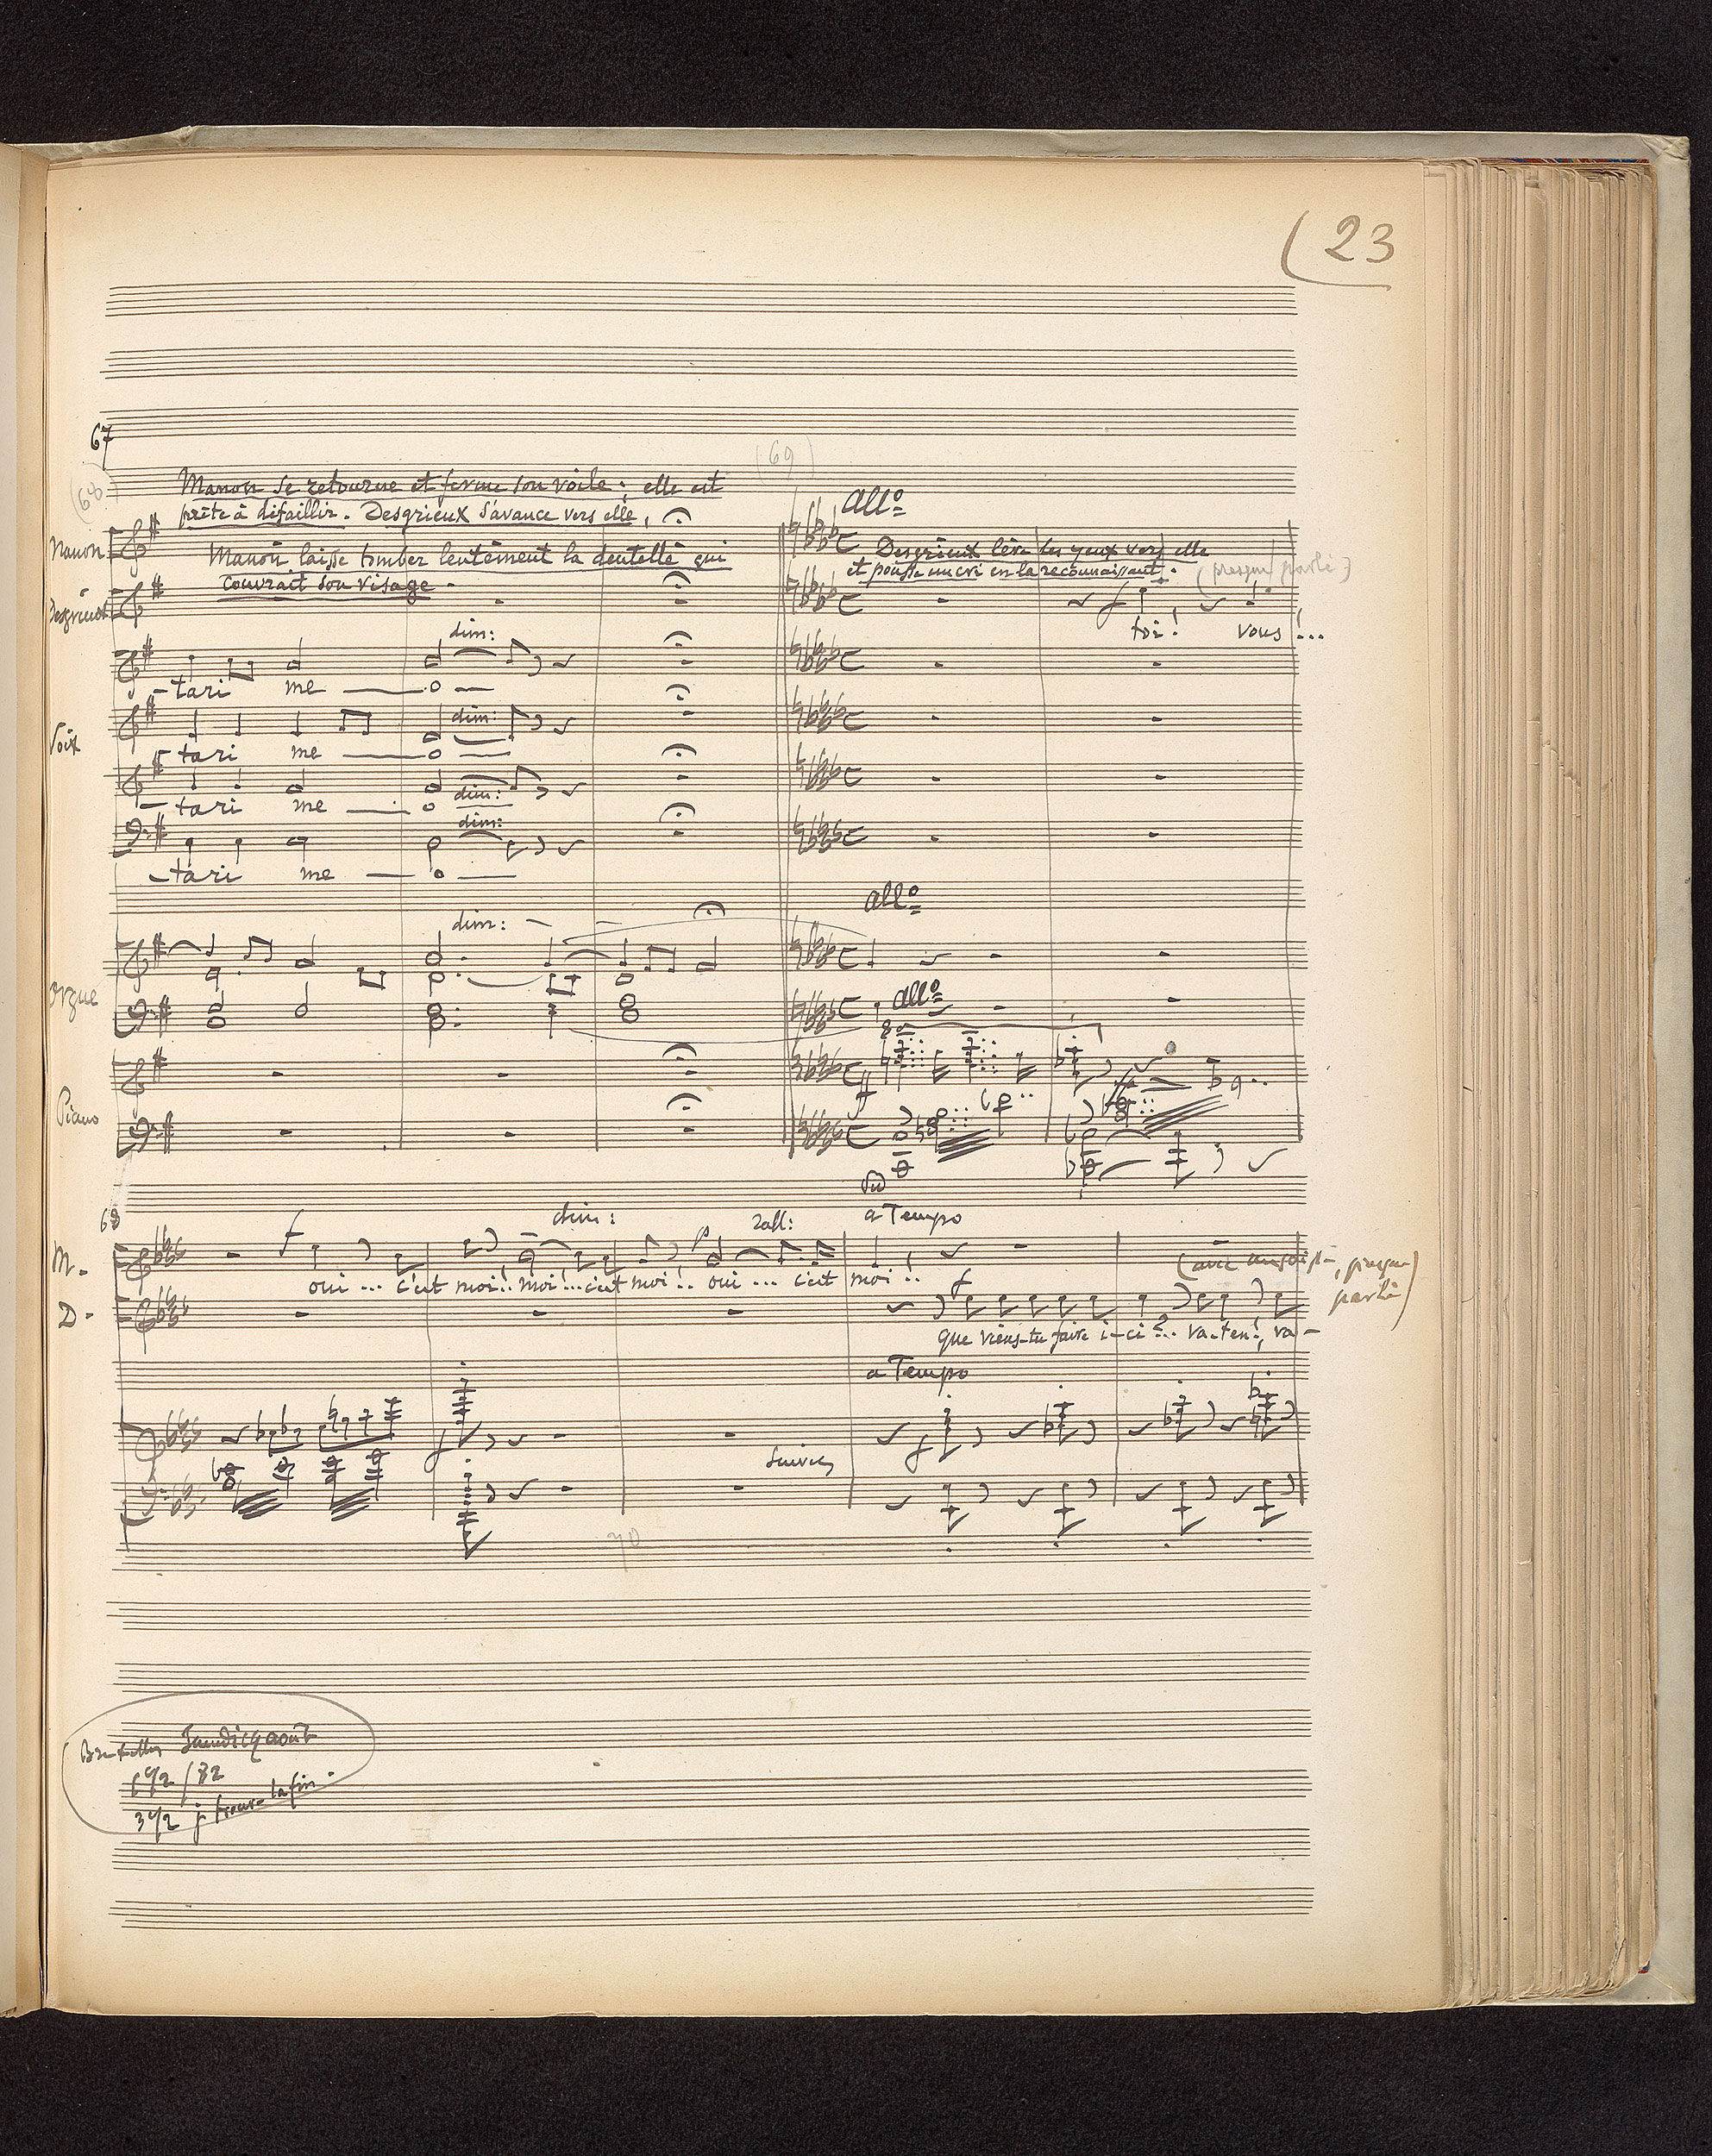 (23
67
(69)
(68)
Manon se retourne et ferme son voile ; elle est
prête à défaillir. Desgrieux s'avance vers elle,
Allº
Manon
Manon laisse tomber lentement la dentelle qui
couvrait son visage.
Desgrieux lève les yeux vers elle
et pousse un cri en la reconnaissant.
(presque parlé)
Desgrieux
toi! vous!...
dim:
- tari me o
Voix
dim:
- tari me o
dim:
- tari me o
dim:
- tari me o
allº
dim:
Orgue
allº
8ª
ff
Piano
68
f dim: p rall: a Tempo
M.
oui ... c'est moi!.. moi!... c'est moi!.. oui ... c'est moi!..
(avec angoisse, presque
parlé)
D.
f
que viens-tu faire i-ci?... va-t'en!, va-
a Tempo
f suivez f
70
Bruxelles août
/82
3 1/2 je trouve la fin.